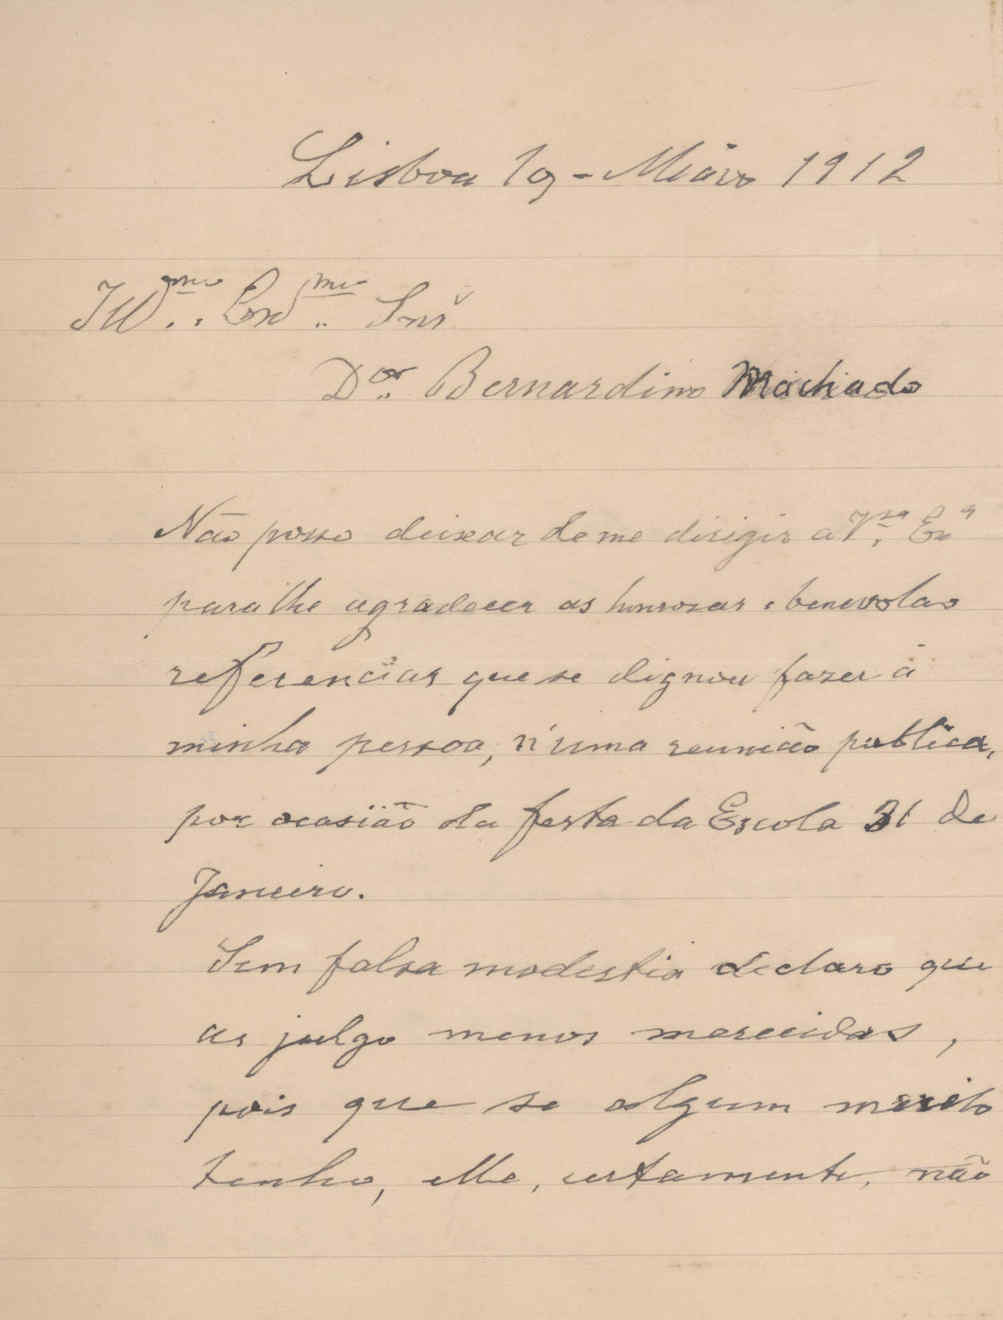 Lisboa 19 - Março 1912
Ill.mo Ex.mo Snr
D.or Bernardino Machado
Não posso deixar de me dirigir a V.sa Ex.a
para lhe agradecer as honrosas e benevolas
referencias que se dignou fazer á
minha pessoa, n'uma reunião publica,
por ocasião da festa da Escola 31 de
Janeiro.
Sem falsa modestia declaro que
as julgo menos merecidas,
pois que se algum merito
tenho, elle, certamente, não